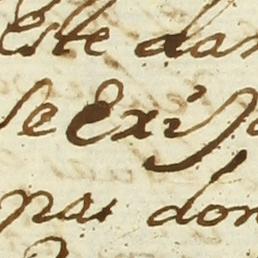 Este dan
se Exi
pas don